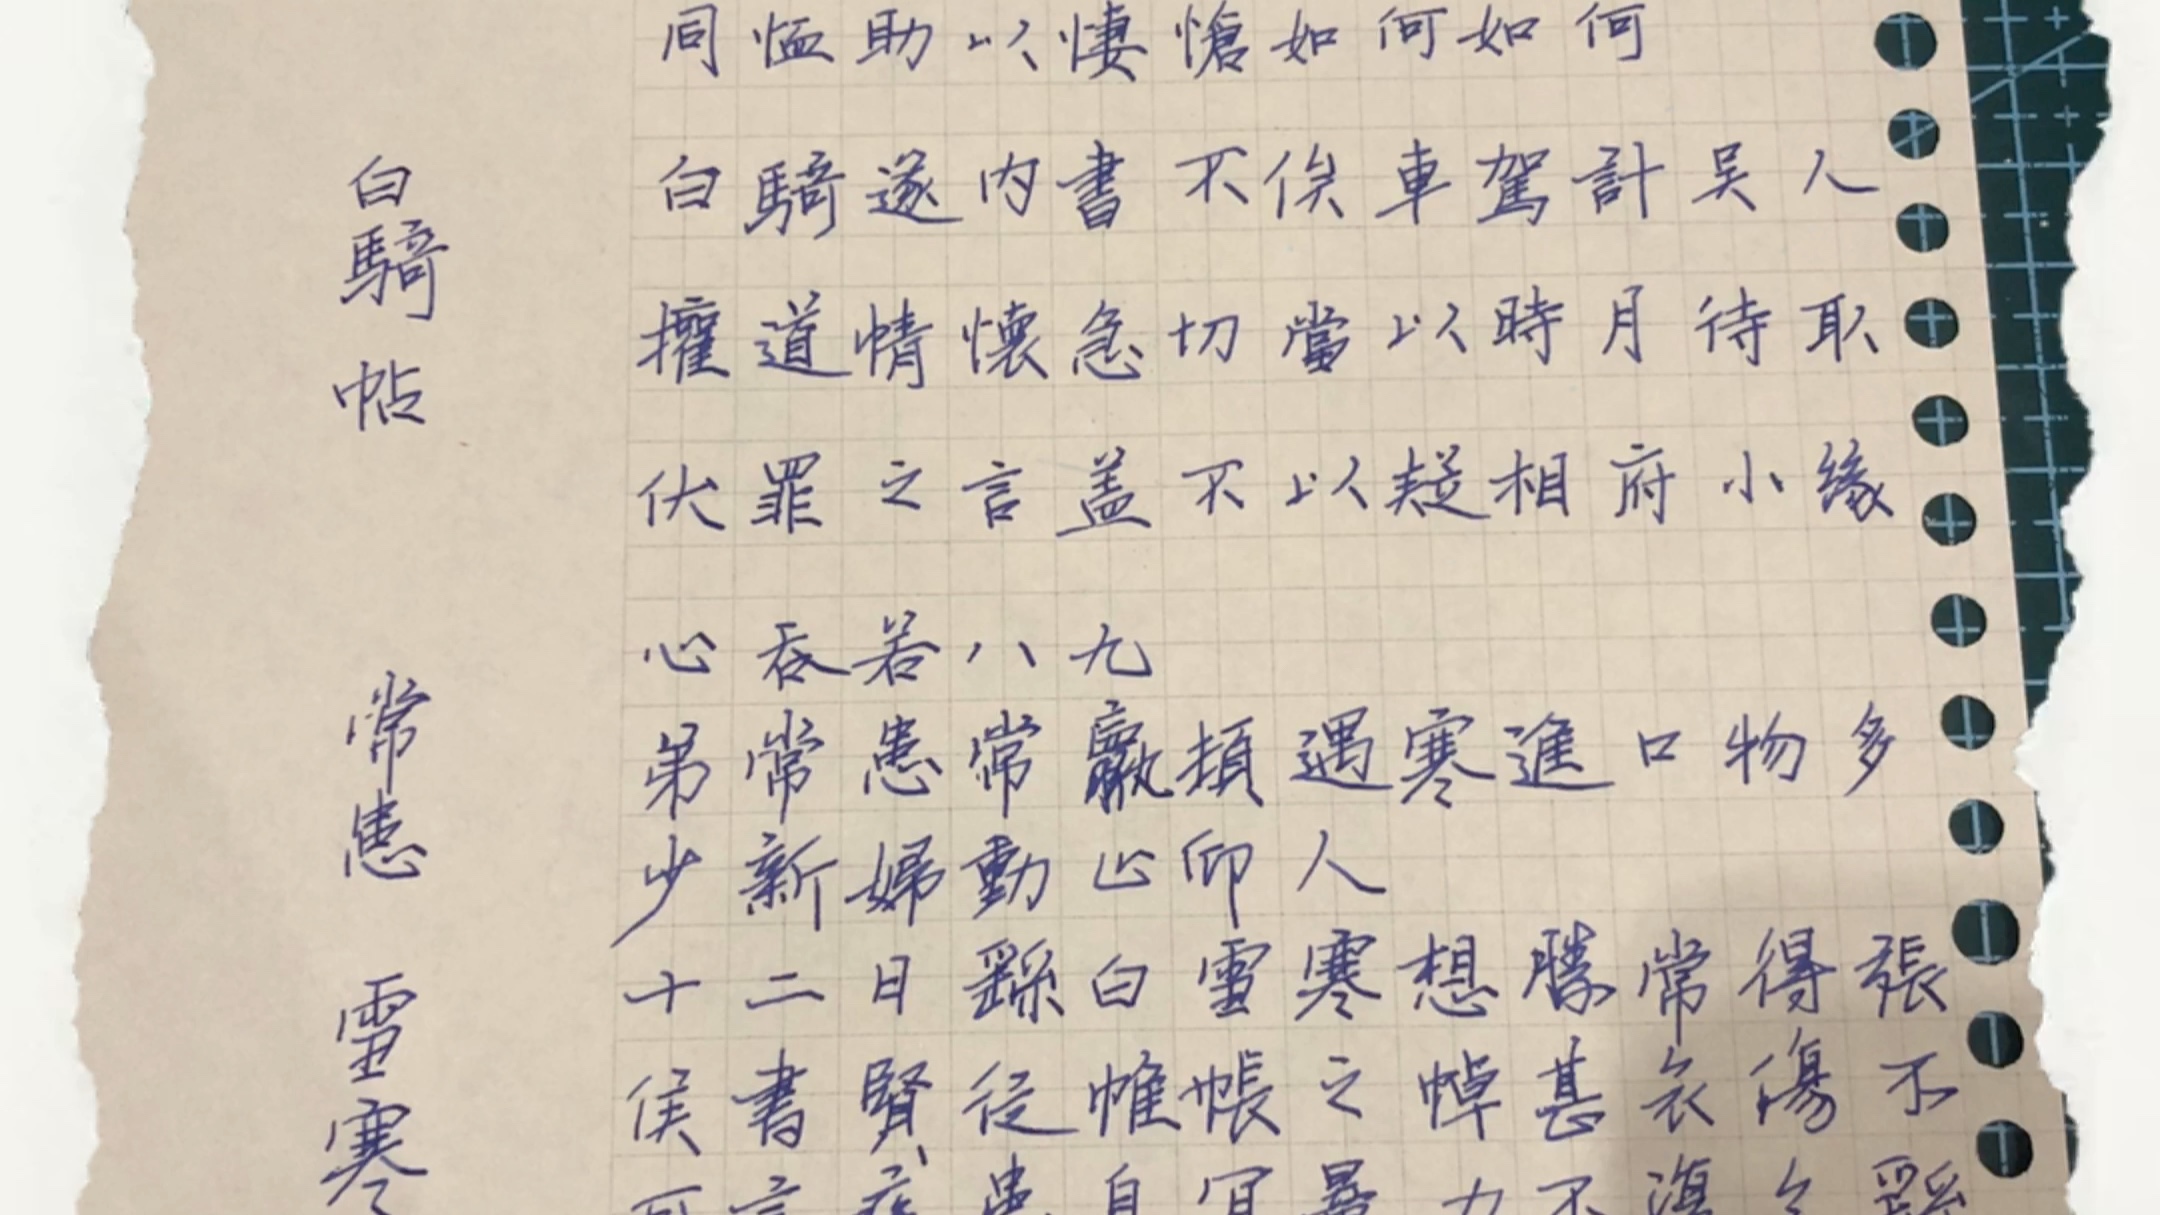 同恤助以悽愴如何如何
白騎帖
白騎遂内書不俟車駕計吴人
擁道情懷急切當以時月待取
伏罪之言蓋不以疑相府小緣
心吞若八九
常患
弟常患常羸頓遇寒進口物多
少新婦動止仰人
雪寒
十二日繇白雪寒想勝常得張
侯書賢從帷帳之悼甚哀傷不
可言疾患自宜量力不復繇